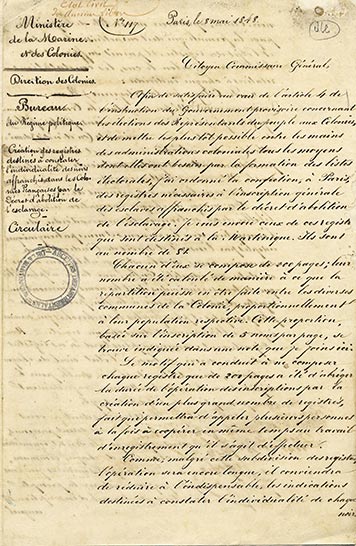 Ministère
de la Marine
et des Colonies.
Direction des Colonies.
Bureau
du Régime politique.
Création des registres
destinés à constater
l'individualité des noirs
affranchis dans les Colo-
nies Françaises par le
Décret d'abolition de
l'esclavage.
Circulaire
Etat Civil
N.º 117
Paris, le 8 mai 1848.
Citoyen Commissaire Général,
Afin de satisfaire au vœu de l'article 4 de
l'instruction du Gouvernement provisoire concernant
les élections des Représentants du peuple aux Colonies,
et de mettre le plus tôt possible entre les mains
des administrations coloniales tous les moyens
dont elles ont besoin par la formation des listes
électorales, j'ai ordonné la confection, à Paris,
des registres nécessaires à l'inscription générale
des esclaves affranchis par le décret d'abolition
de l'esclavage. Je vous envoie ceux de ces registres
qui sont destinés à la Martinique. Ils sont
au nombre de 54.
Chacun d'eux se compose de 200 pages; leur
nombre a été calculé de manière à ce que la
répartition puisse en être faite entre les diverses
communes de la Colonie proportionnellement
à leur population respective. Cette proportion,
basée sur l'inscription de 5 noms par page, se
trouve indiquée dans une note que je joins ici.
Le motif qui a conduit à ne composer
chaque registre que de 200 pages a été d'abréger
la durée de l'opération des inscriptions par la
création d'un plus grand nombre de registres,
fait qui permettra d'appeler plusieurs personnes
à la fois à coopérer en même temps au travail
d'enregistrement qu'il s'agit d'opérer.
Comme, malgré cette subdivision des registres,
l'opération sera encore longue, il conviendra
de réduire à l'indispensable, les indications
destinées à constater l'individualité de chaque
noir,